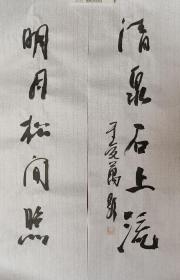 清泉石上流
明月松间照